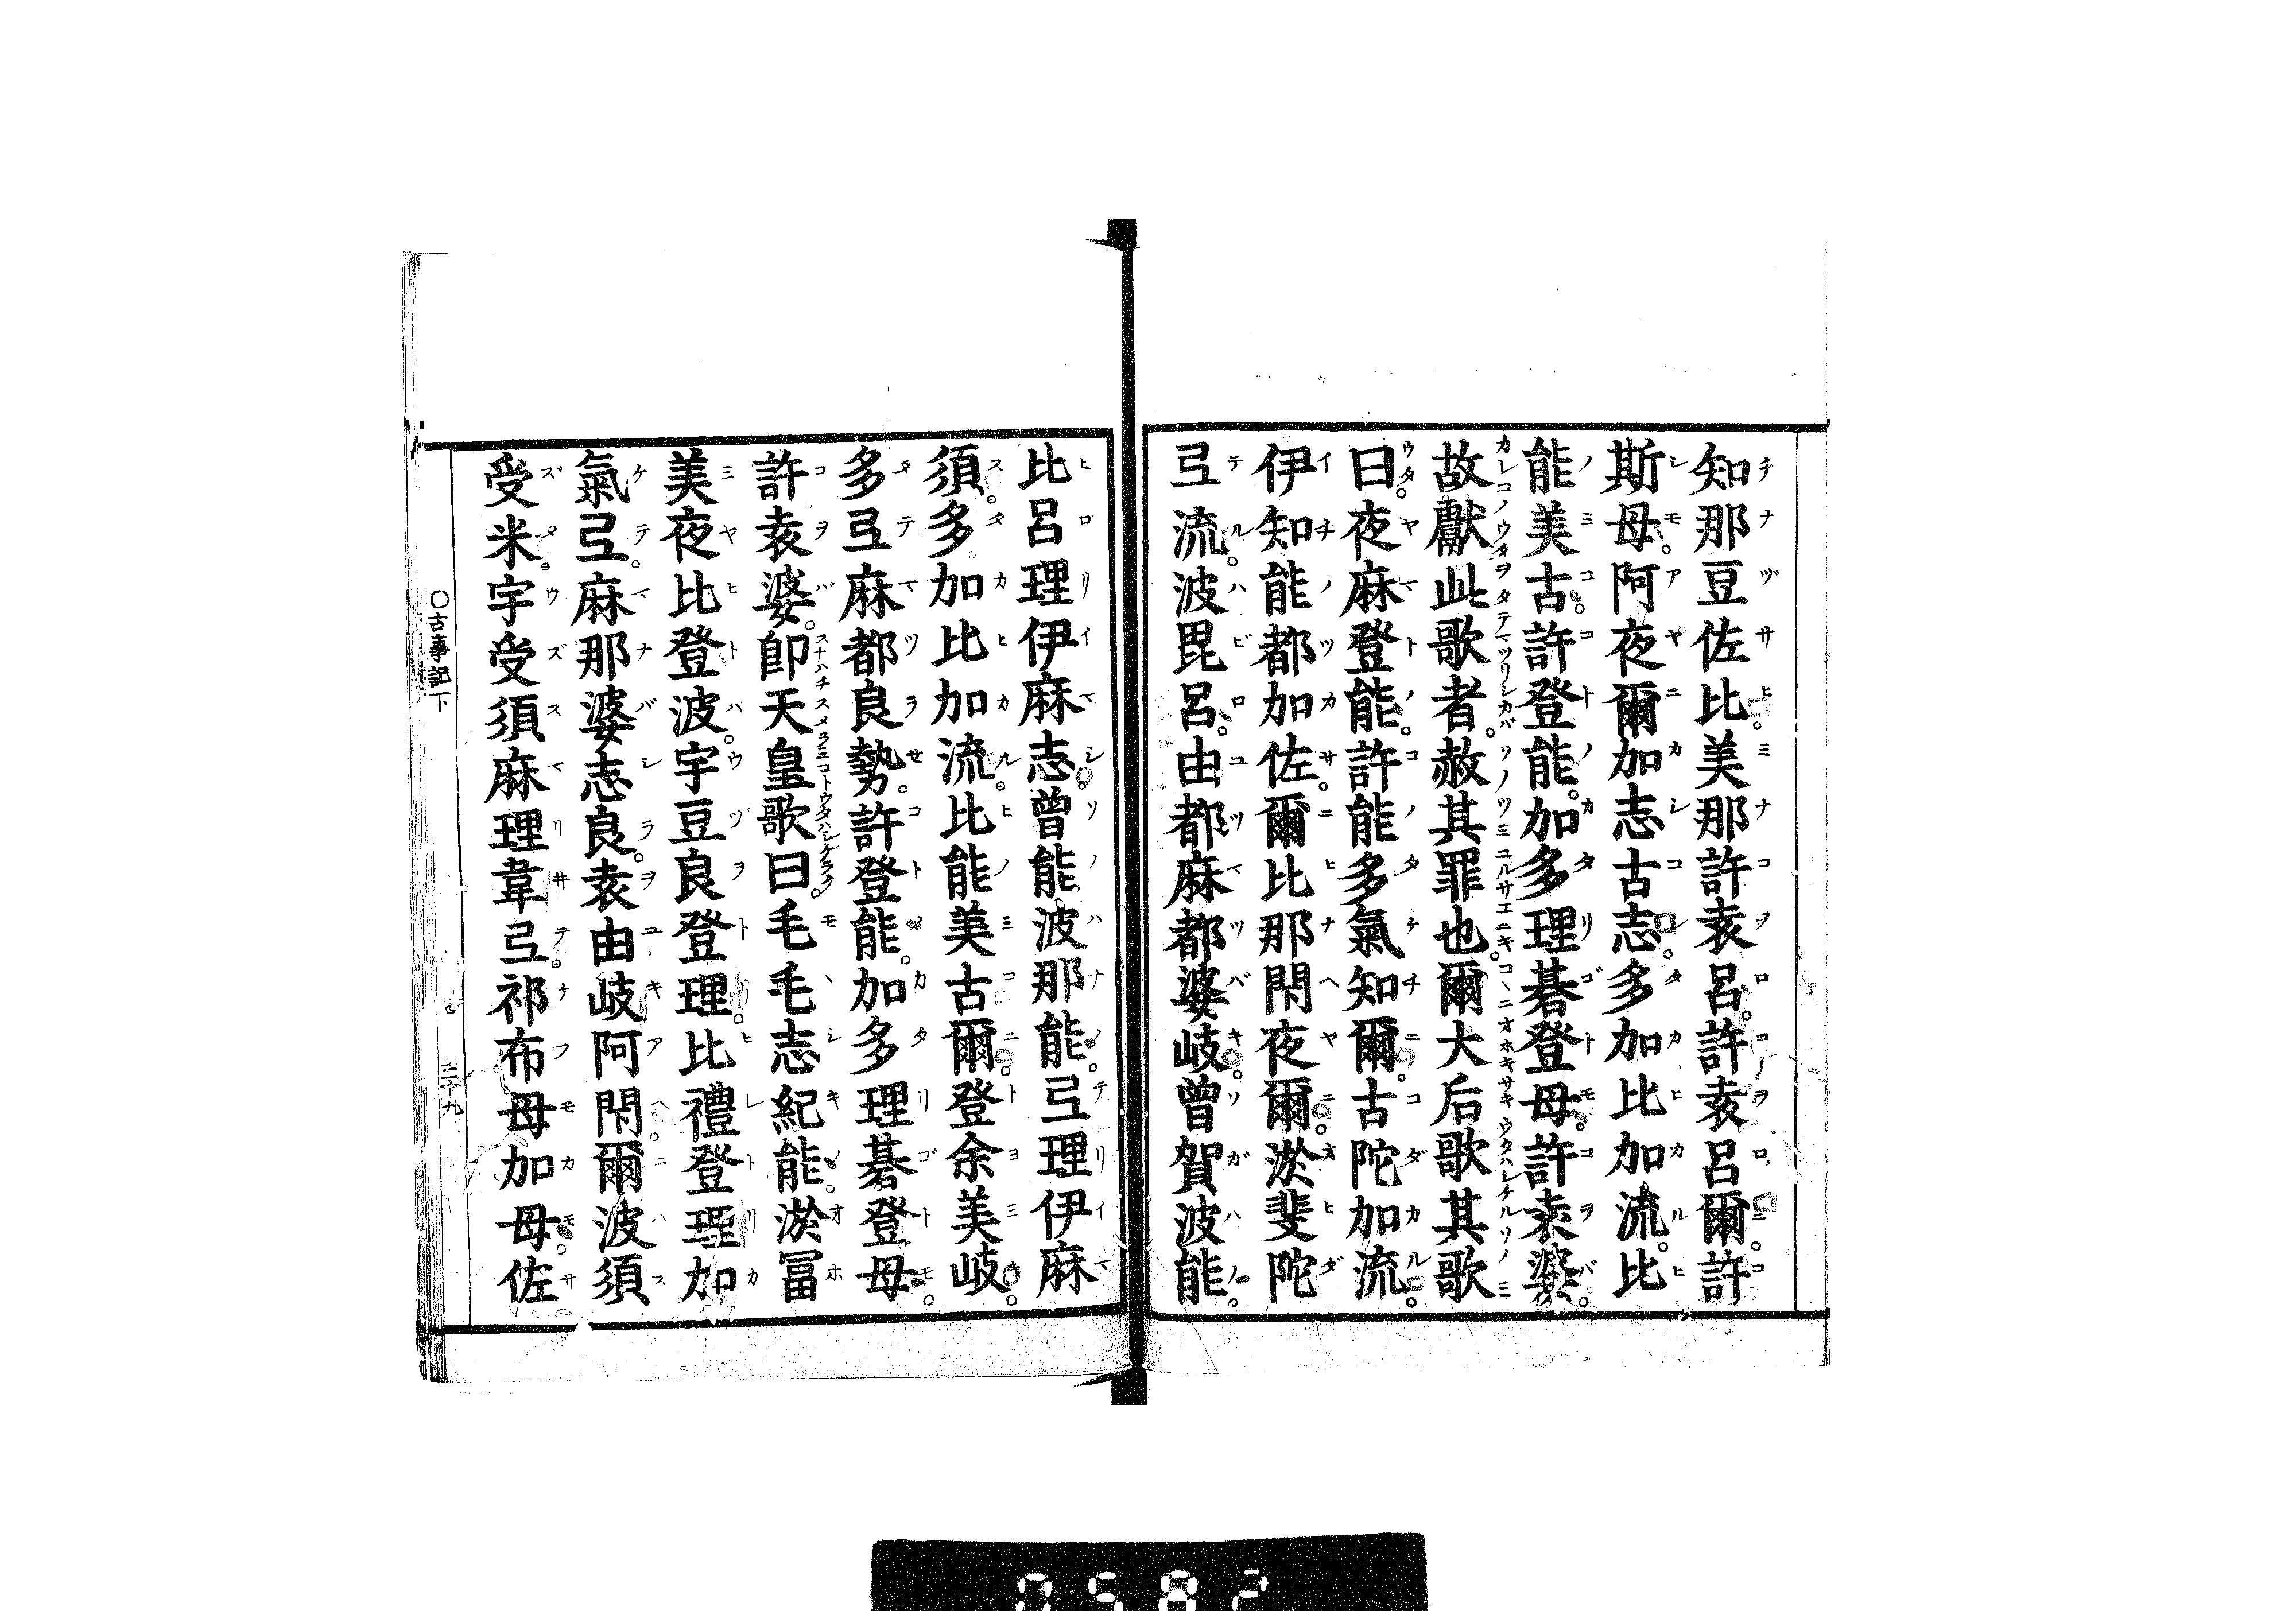 知那豆佐比。美那許袁呂。許袁呂爾。許
斯母。阿夜爾加志古志。多加比加流。比
能美古。許登能。加多理碁登母。許袁婆。
故獻此歌者。赦其罪也。爾大后歌其歌
曰。夜麻登能。許能多氣知爾。古陀加流。
伊知能都加佐。爾比那閇夜爾。淤斐陀
弖流。波毘呂。由都麻都婆岐。曾賀波能。
比呂理伊麻志。曾能波那能。弖理伊麻
須。多加比加流。比能美古爾。登余美岐。
多弖麻都良勢。許登能。加多理碁登母。
許袁婆。卽天皇歌曰。毛毛志紀能。淤冨
美夜比登波。宇豆良登理。比禮登理加
氣弖。麻那婆志良。袁由岐阿閇。爾波須
受米。宇受須麻理韋弖。祁布母加母。佐
○古事記下
三十九
0582